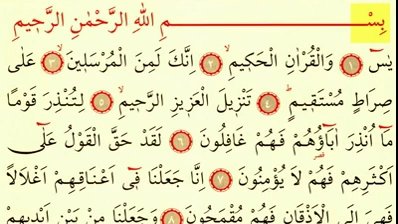 بِسْــــــــــــــــــمِ اللهِ الرَّحْمٰنِ الرَّحٖيمِ
يٰسٓ ﴿١﴾ وَالْقُرْاٰنِ الْحَكٖيمِۙ ﴿٢﴾ اِنَّكَ لَمِنَ الْمُرْسَلٖينَۙ ﴿٣﴾ عَلٰى
صِرَاطٍ مُسْتَقٖيمٍؕ ﴿٤﴾ تَنْزٖيلَ الْعَزٖيزِ الرَّحٖيمِۙ ﴿٥﴾ لِتُنْذِرَ قَوْمًا
مَٓا اُنْذِرَ اٰبَٓاؤُ۬هُمْ فَهُمْ غَافِلُونَ ﴿٦﴾ لَقَدْ حَقَّ الْقَوْلُ عَلٰٓى
اَكْثَرِهِمْ فَهُمْ لَا يُؤْمِنُونَ ﴿٧﴾ اِنَّا جَعَلْنَا فٖٓي اَعْنَاقِهِمْ اَغْلَالًا
فَهِيَ اِلَى الْاَذْقَانِ فَهُمْ مُقْمَحُونَ ﴿٨﴾ وَجَعَلْنَا مِنْ بَيْنِ اَيْدٖيهِمْ